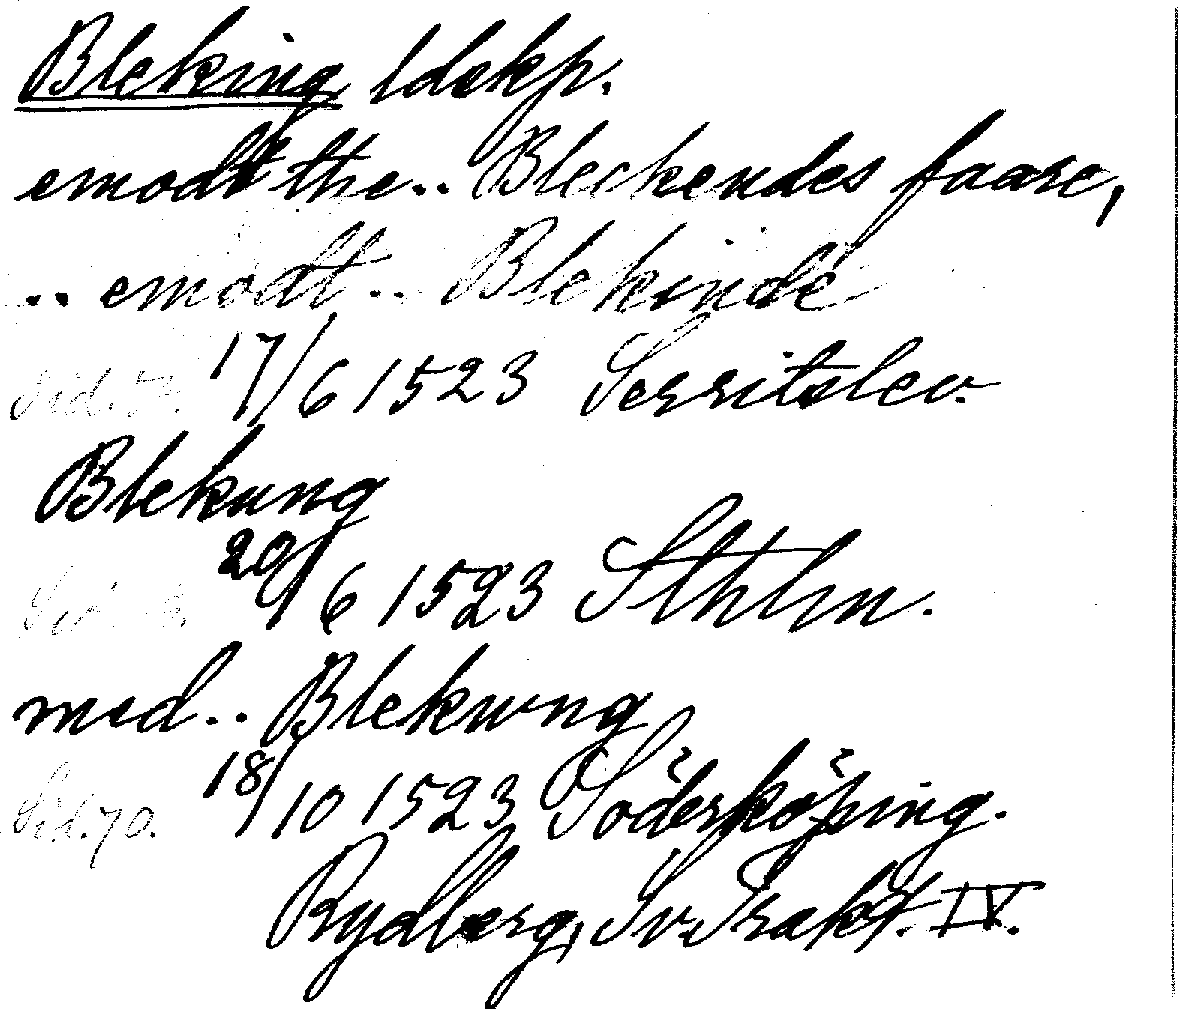 Bleking ldskp.
emodt the.. Bleckendes faare,
.. emodt.. Blekinde
17/6 1523 Serritslev.
Blekung
20/6 1523 Sthlm.
med.. Blekung
Sid. 70. 18/10 1523 Söderköping.
Rydberg, Sv. Trakt. IV.